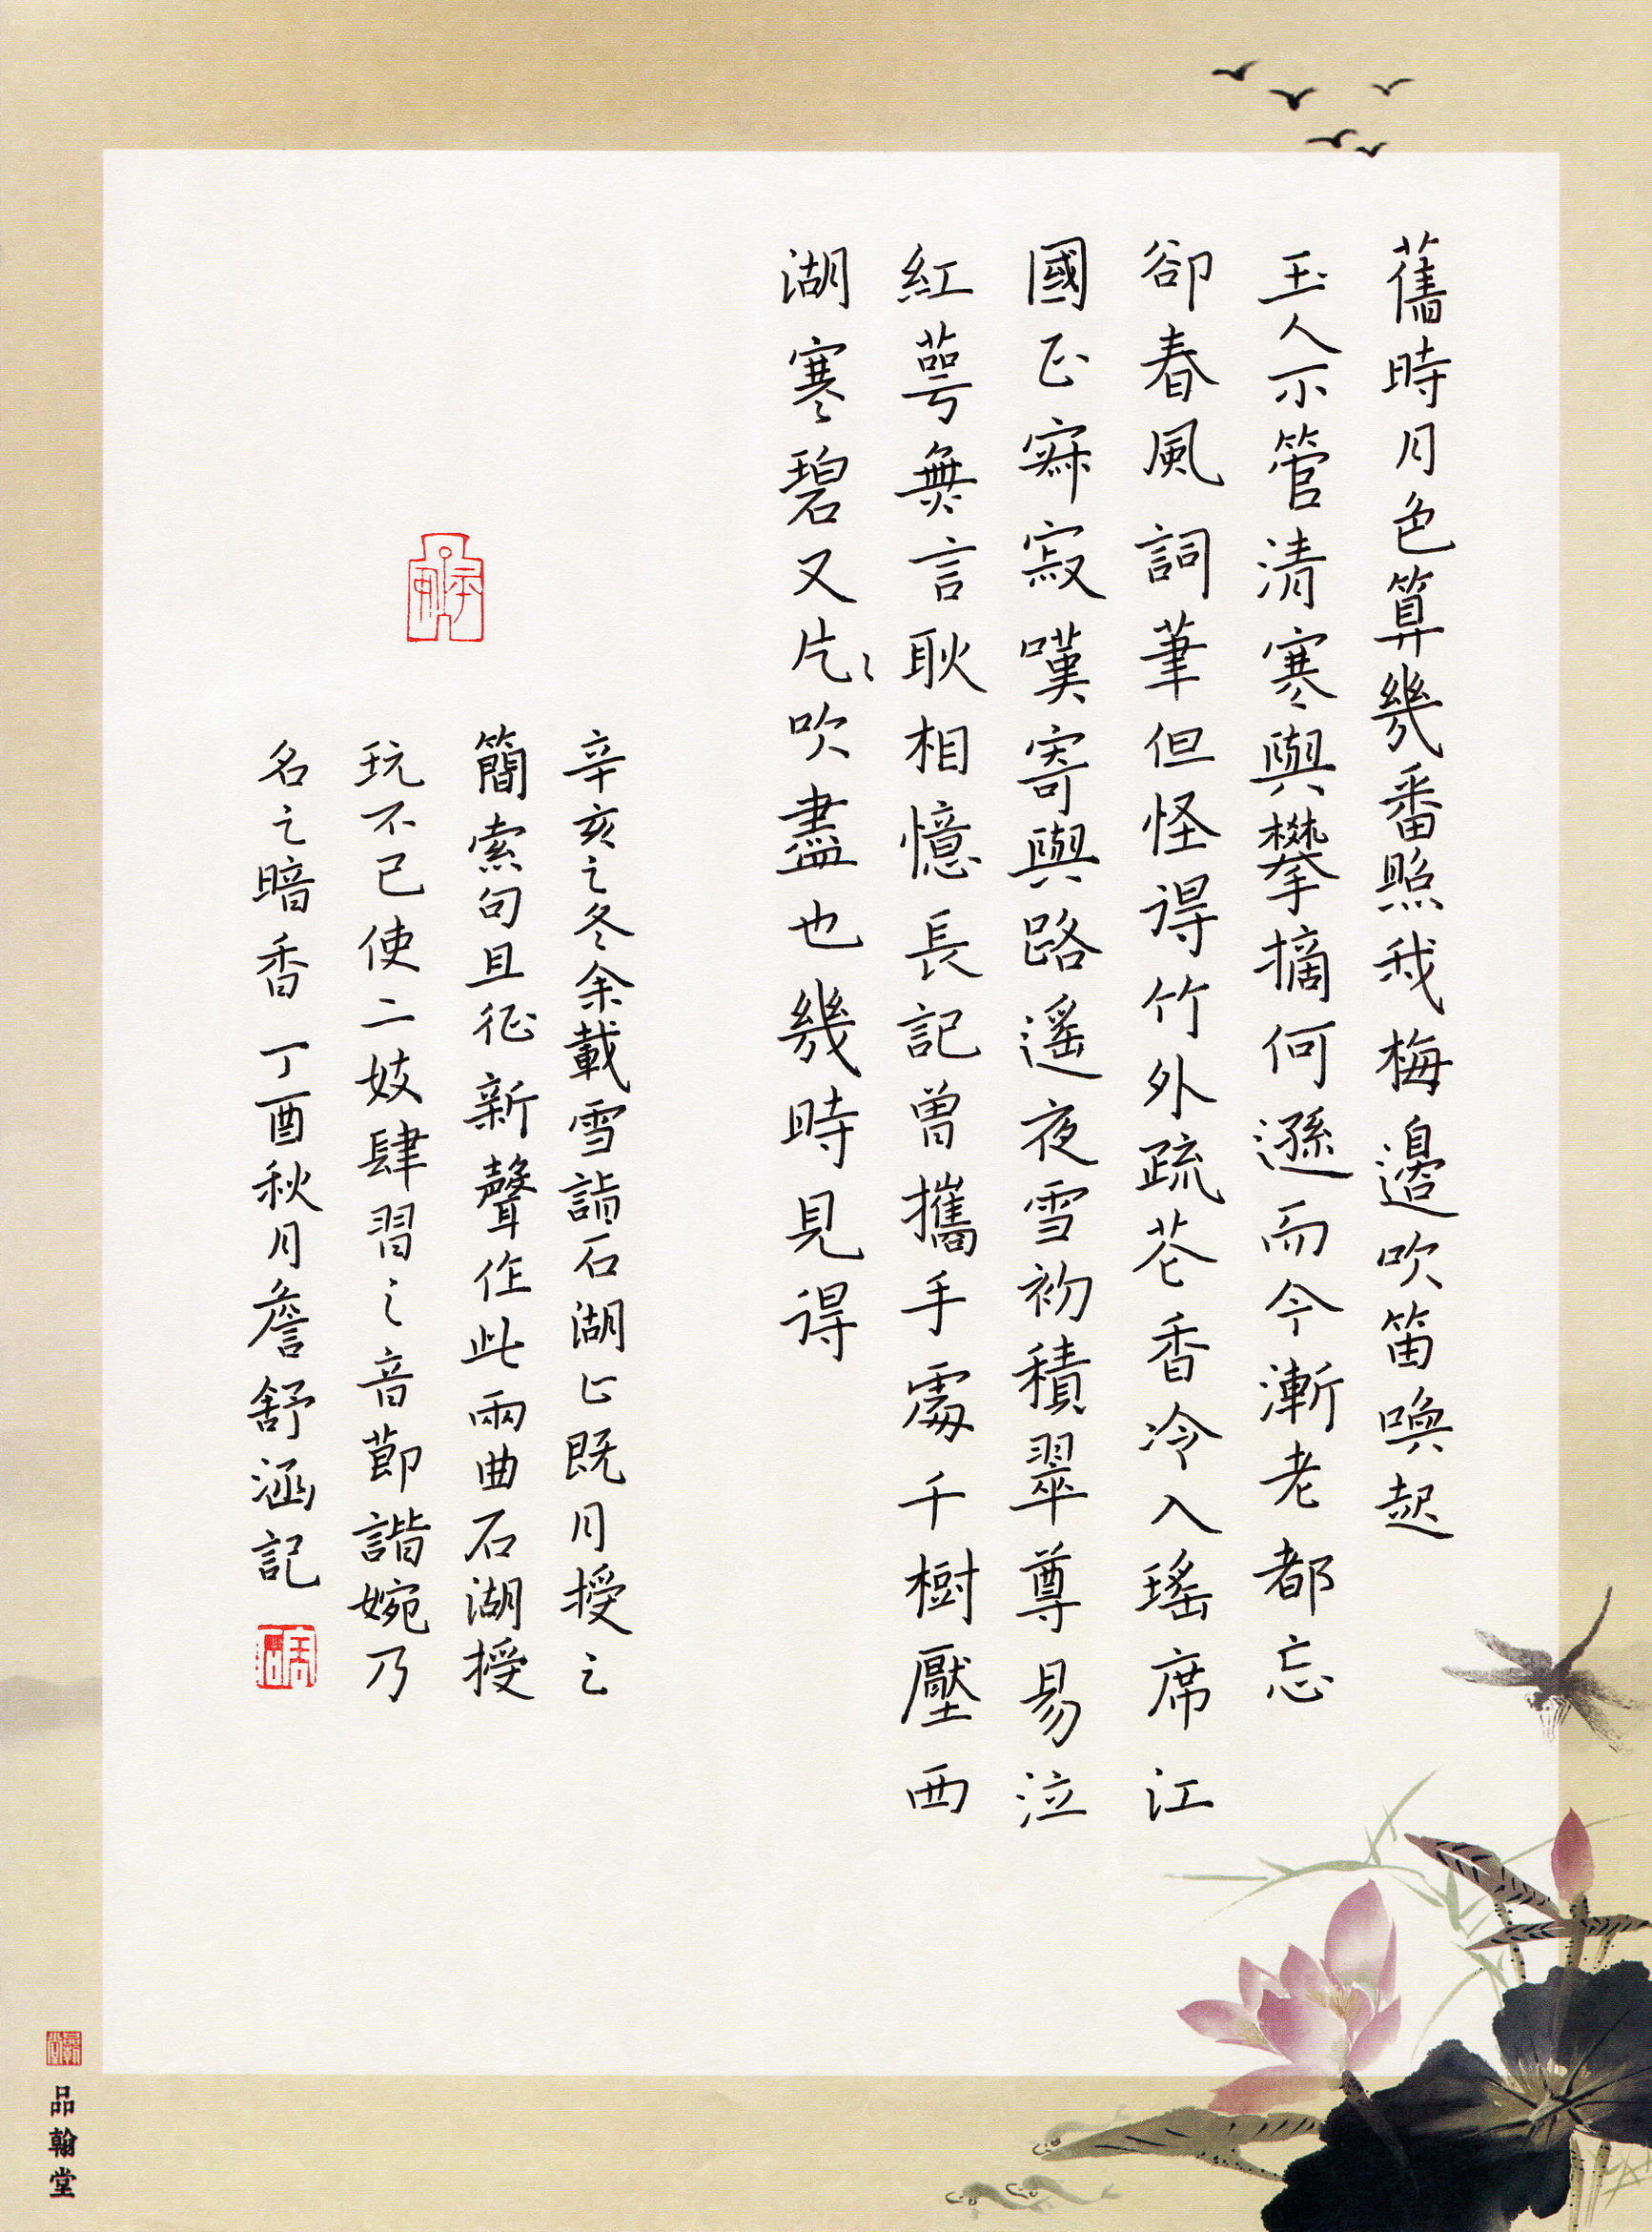 舊時月色算幾番照我梅邊吹笛喚起
玉人不管清寒與攀摘何遜而今漸老都忘
卻春風詞筆但怪得竹外疏花香冷入瑤席江
國正寂寂嘆寄與路遙夜雪初積翠尊易泣
紅萼無言耿相憶長記曾攜手處千樹壓西
湖寒碧又片〻吹盡也幾時見得
辛亥之冬余載雪詣石湖止既月授之
簡索句且征新聲作此兩曲石湖授
玩不已使二妓肆習之音節諧婉乃
名之暗香 丁酉秋月詹舒涵記
品翰堂